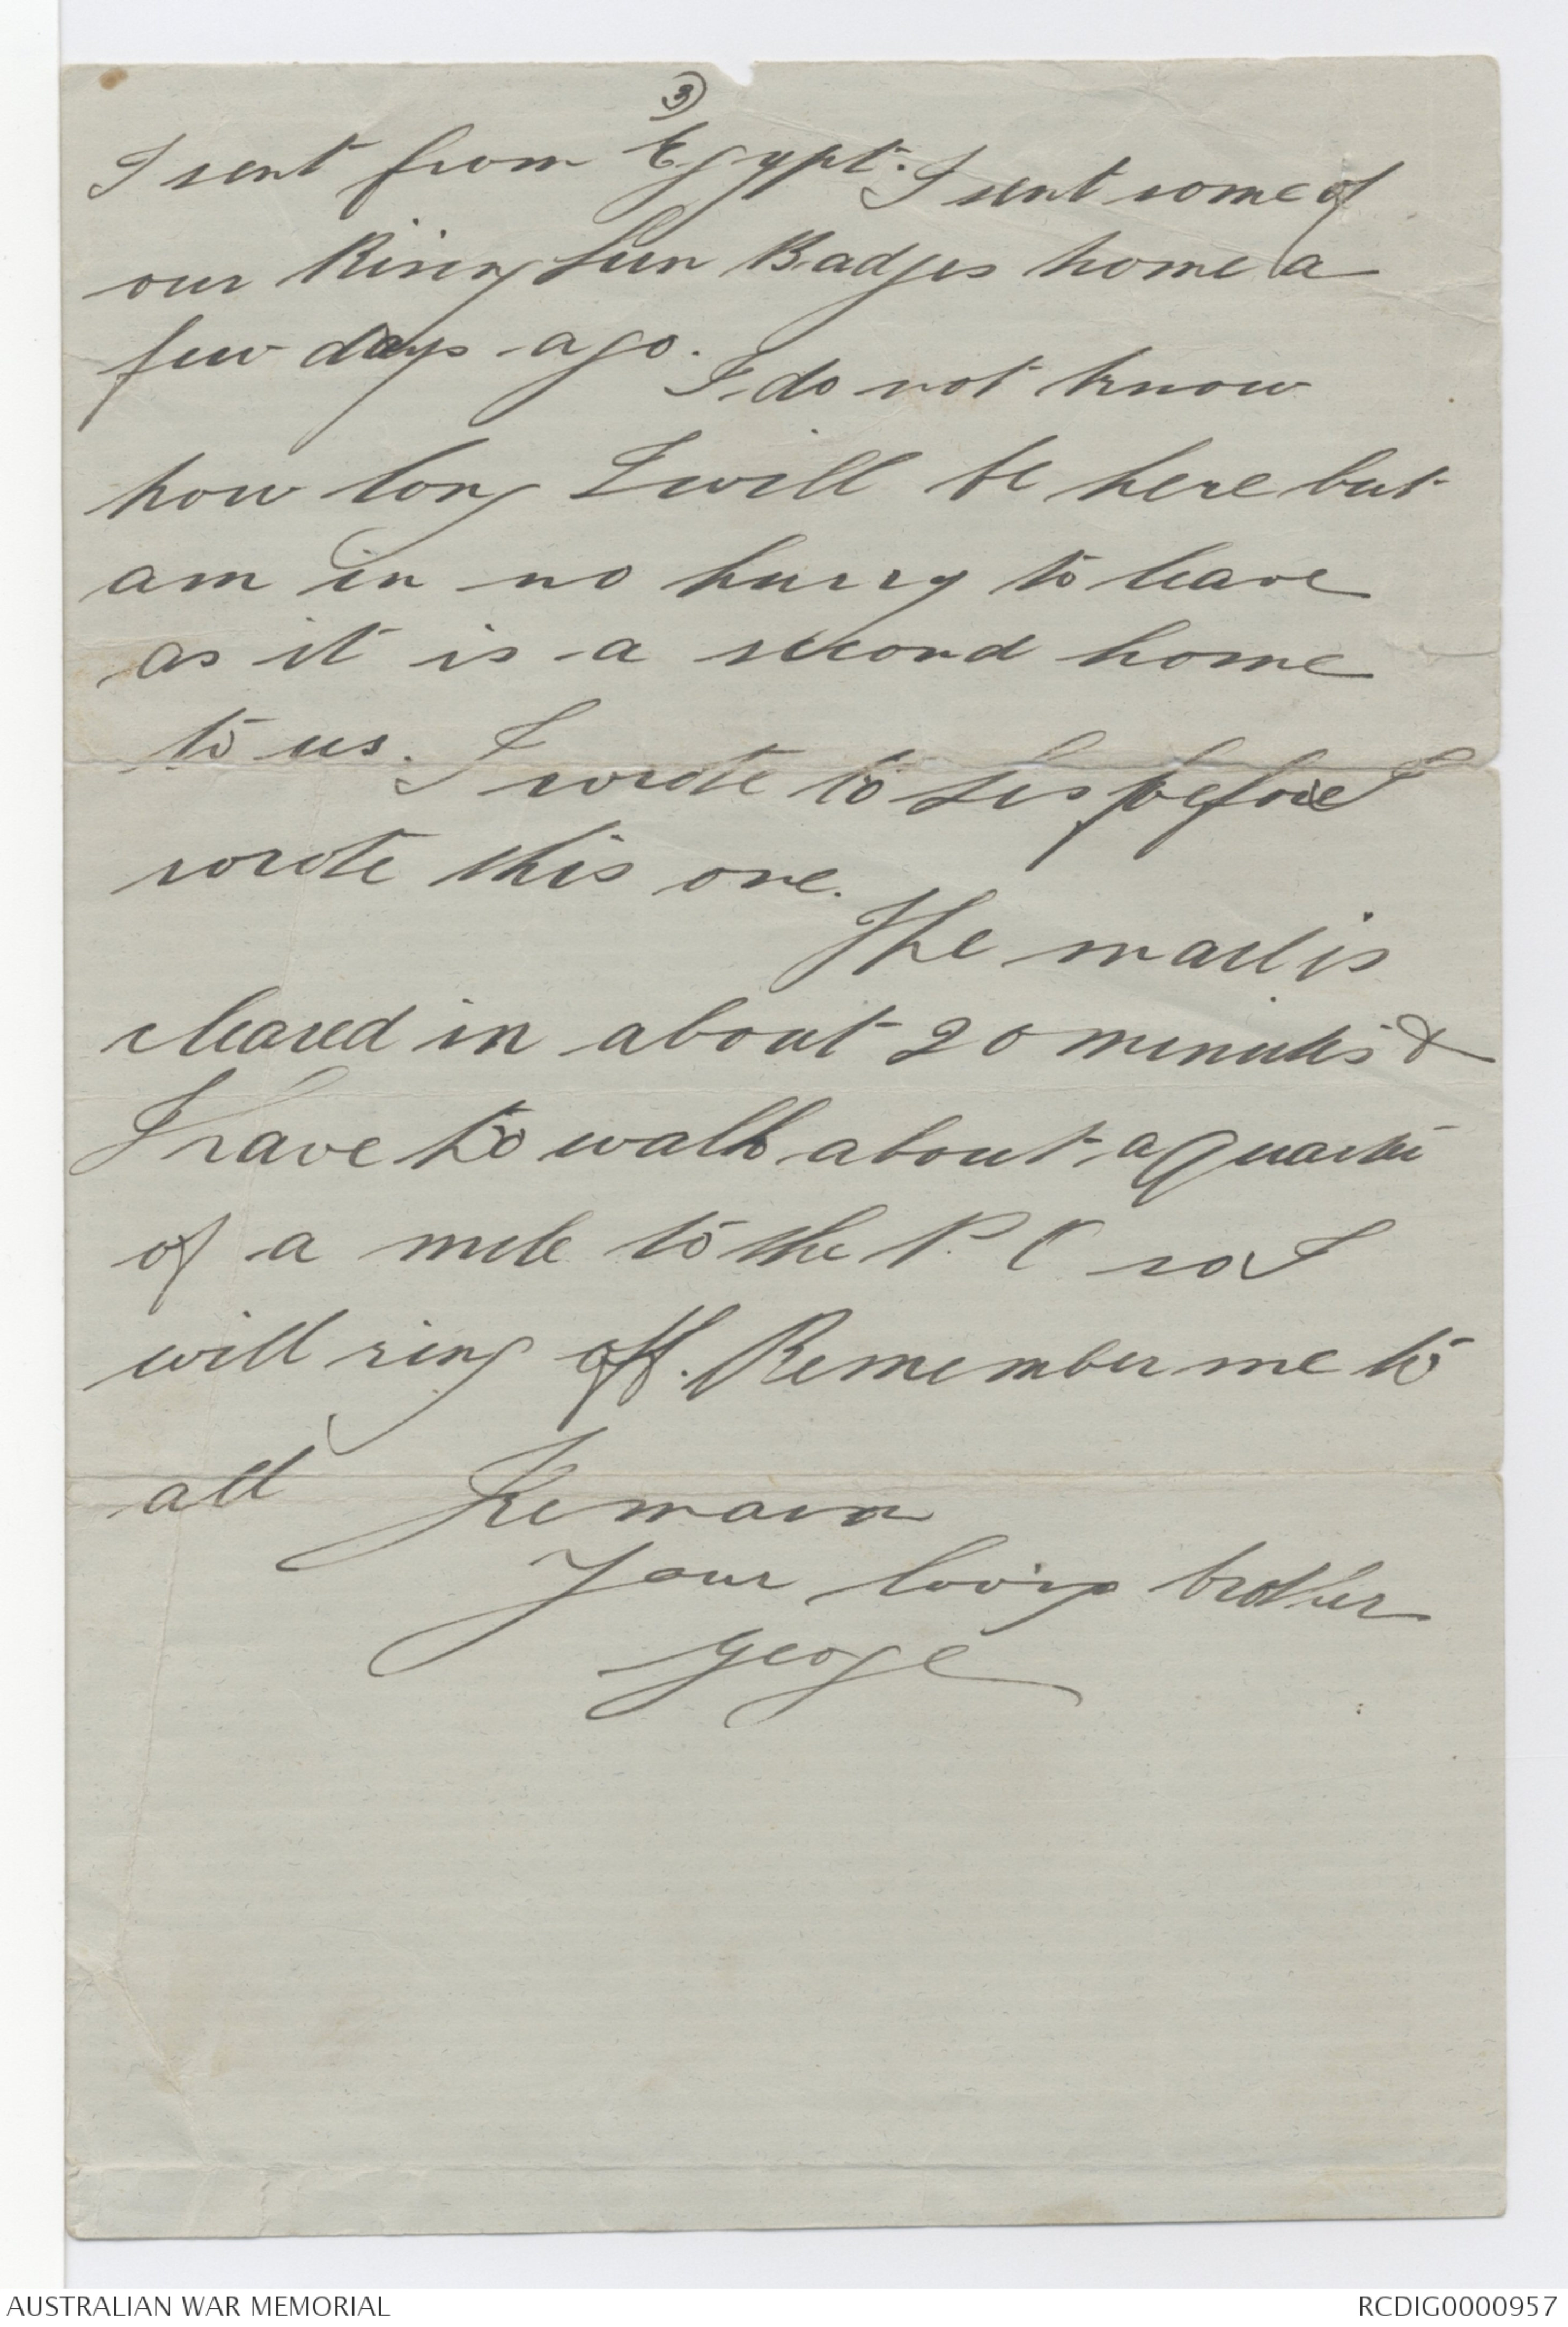 3
I sent from Egypt. I sent some of
our Rising Sun Badges home a
few days ago.
I do not know
how long I will be here but
am in no hurry to leave
as it is a second home
to us. I wrote to Sis before I
wrote this one.
The mail is
cleared in about 20 minutes &
I have to walk about a quarter
of a mile to the P. O so I
will ring off. Remember me to
all I remain
Your loving brother
George
AUSTRALIAN WAR MEMORIAL
RCDIG0000957